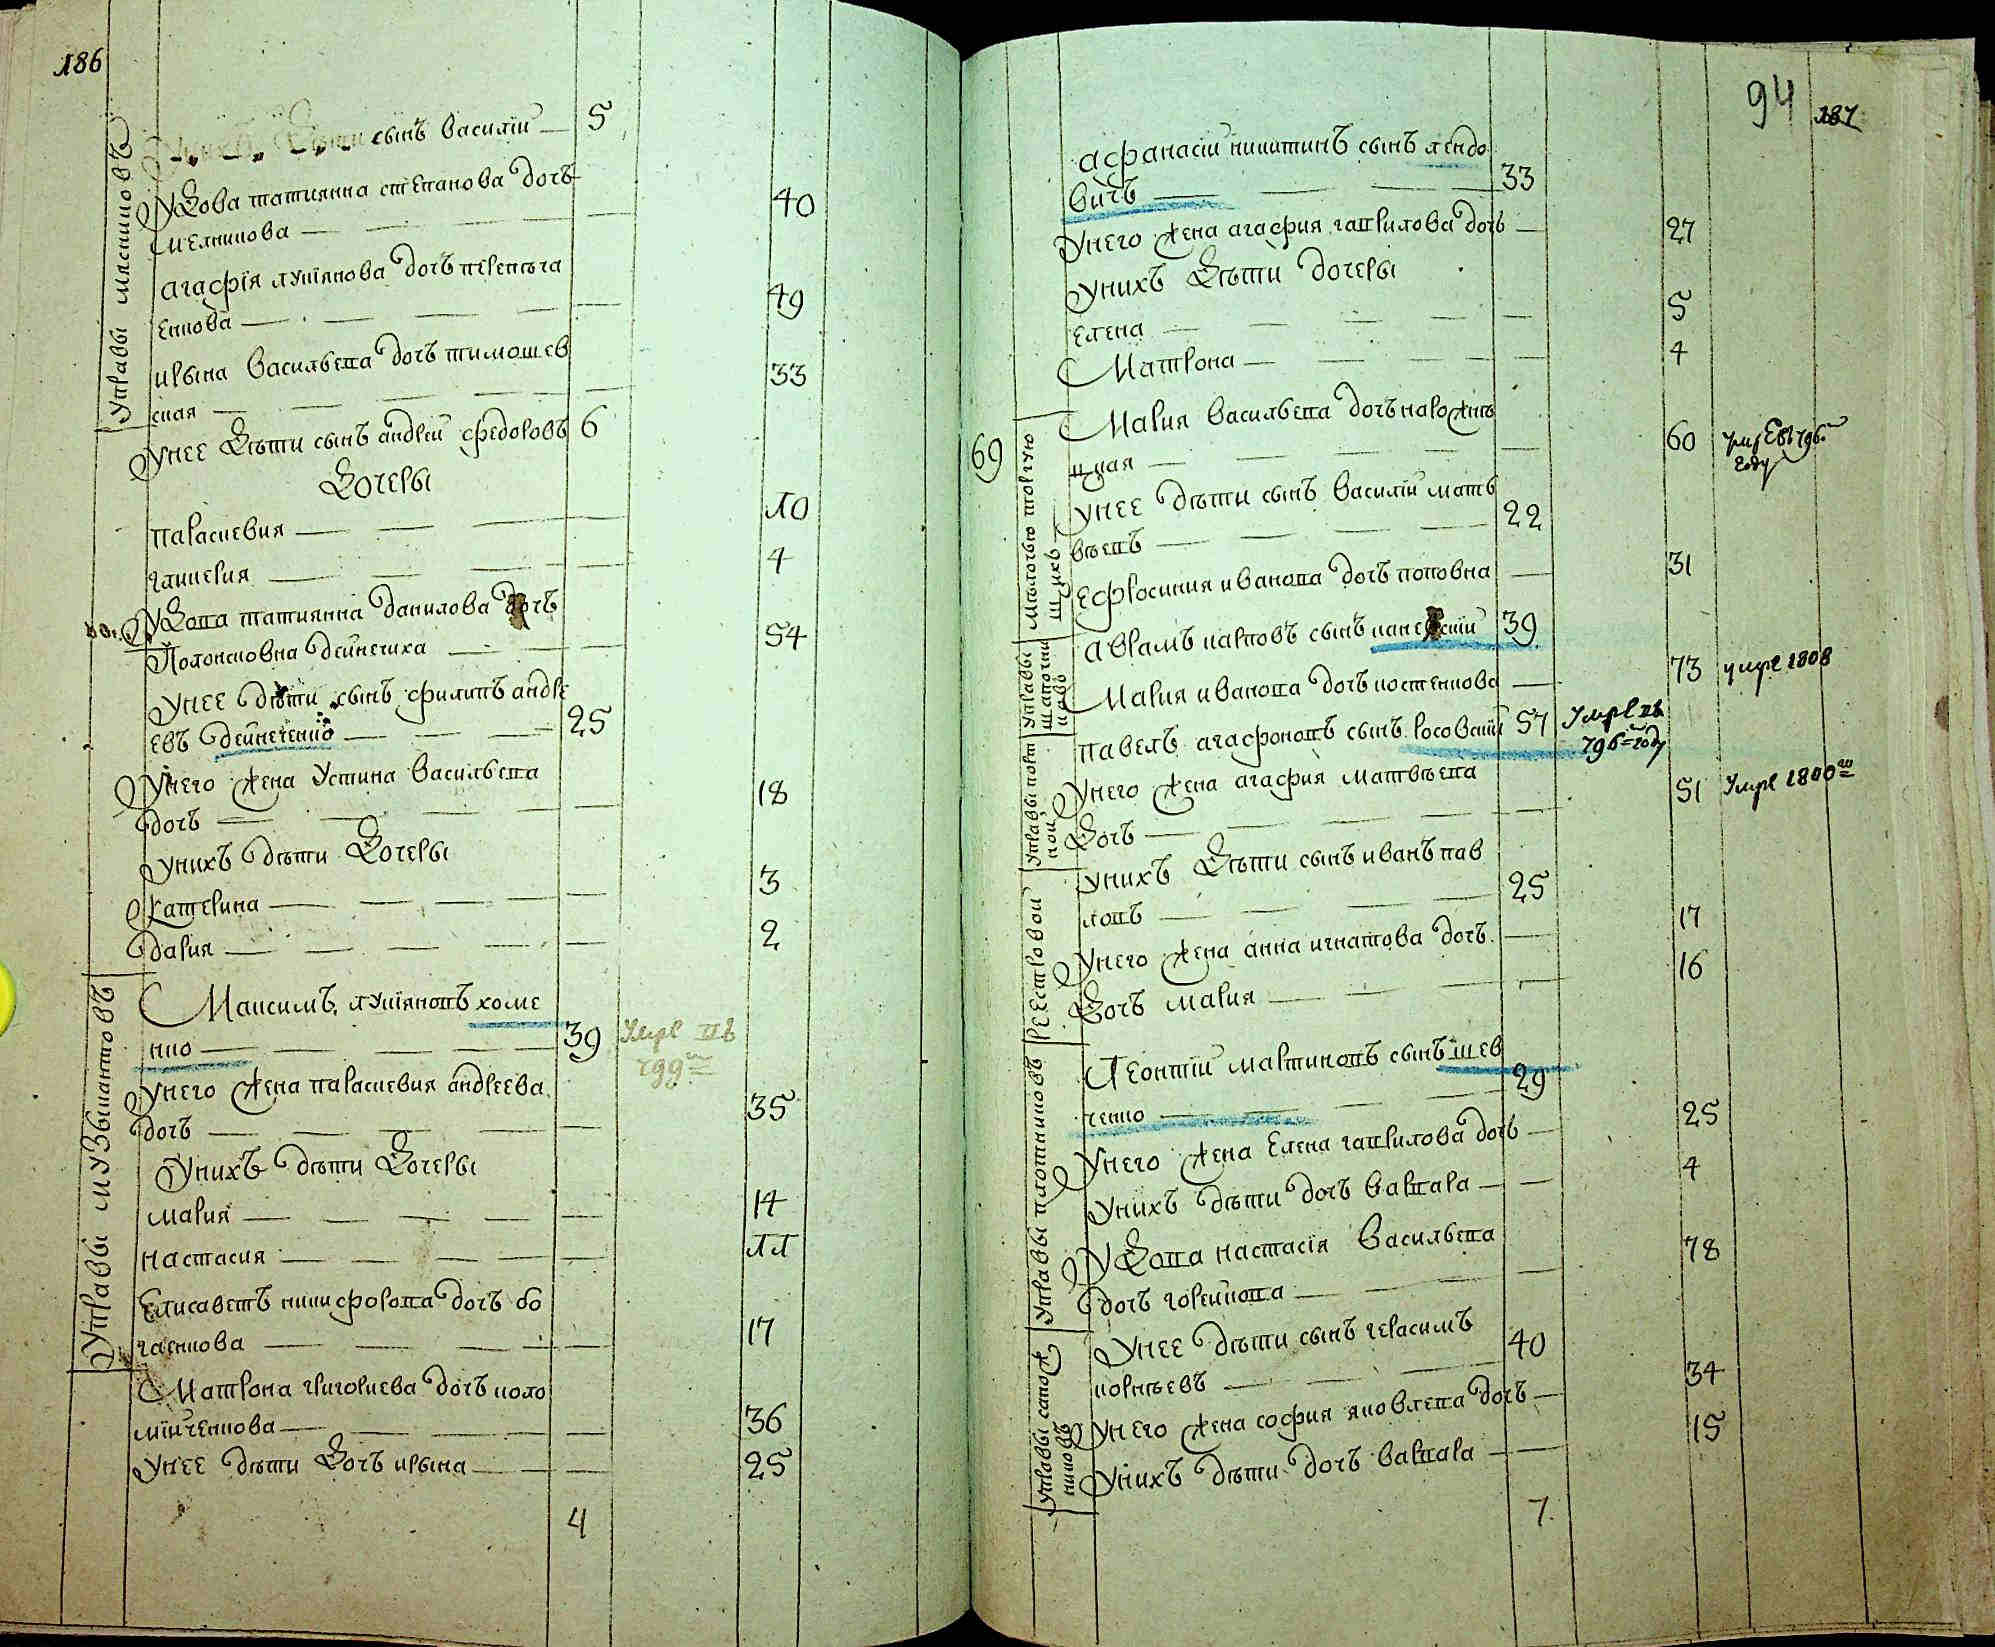 186
Управы мясниковъ
Униxъ дѣти сынъ василій — 5
Удова татиянна степанова дочь
мелникова — 40
агафія лукіянова дочь перепеча
енкова — 49
ирына васильева дочь тимошев
ская — 33
Унее дѣти сынъ андрей федоровъ 6
Дочеры
параскевия — 10
гликерия — 4
Удова татиянна данилова дочь
Полонсковна дейнечиха — 54
Унее дѣти сынъ филипъ андре
евъ дейнеченко — 25
Унего жена Устина васильева
дочь — 18
Унихъ дѣти дочеры
катерина — 3
дария — 2
Управы музыкантовъ
Максимъ лукіяновъ хоме
нко — 39 Умре въ 799м
Унего жена параскевия андреева
дочь — 35
Унихъ дѣти дочеры
мария — 14
настасия — 11
Елисаветъ никифорова дочь бо
гаенкова — 17
Матрона григориева дочь коло
мійченкова — 36
Унее дѣти дочь ирына — 25
4
94 187
афанасій никитинъ сынъ лендо
вичъ — 33
Унего жена агафия гаврилова дочь — 27
Унихъ дѣти дочеры
елена — 5
Матрона — 4
69
Мѣлочью торгую
щихъ
Мария васильева дочь нарожнъ
цкая — 60 умре въ 796м
году
Унее дѣти сынъ василій матв
вѣевъ — 22
Ефросиния иванова дочь поповна — 31
Управы
шапочни
ковъ
аврамъ карповъ сынъ каневскій 39
Мария иванова дочь костенкова — 73 умре 1808
Управы порт
ной
павелъ агафоновъ сынъ росовскій 57 Умре въ
796=году
Унего жена агафия матвѣева
дочь — 51 Умре 1800го
Унихъ дѣти сынъ иванъ пав
ловъ — 25
Реестровой
Унего жена анна игнатова дочь — 17
Дочь мария — 16
Управы плотниковъ
Леонтій мартиновъ сынъ шев
ченко — 29
Унего жена Елена гаврилова дочь — 25
Унихъ дѣти дочь варвара — 4
Удова настасія васильева
дочь горейкова — 78
Управы сапож
никовъ
Унее дѣти сынъ герасимъ
корнѣевъ — 40
Унего жена софия яковлева дочь — 34
Унихъ дѣти дочь варвара — 15
7